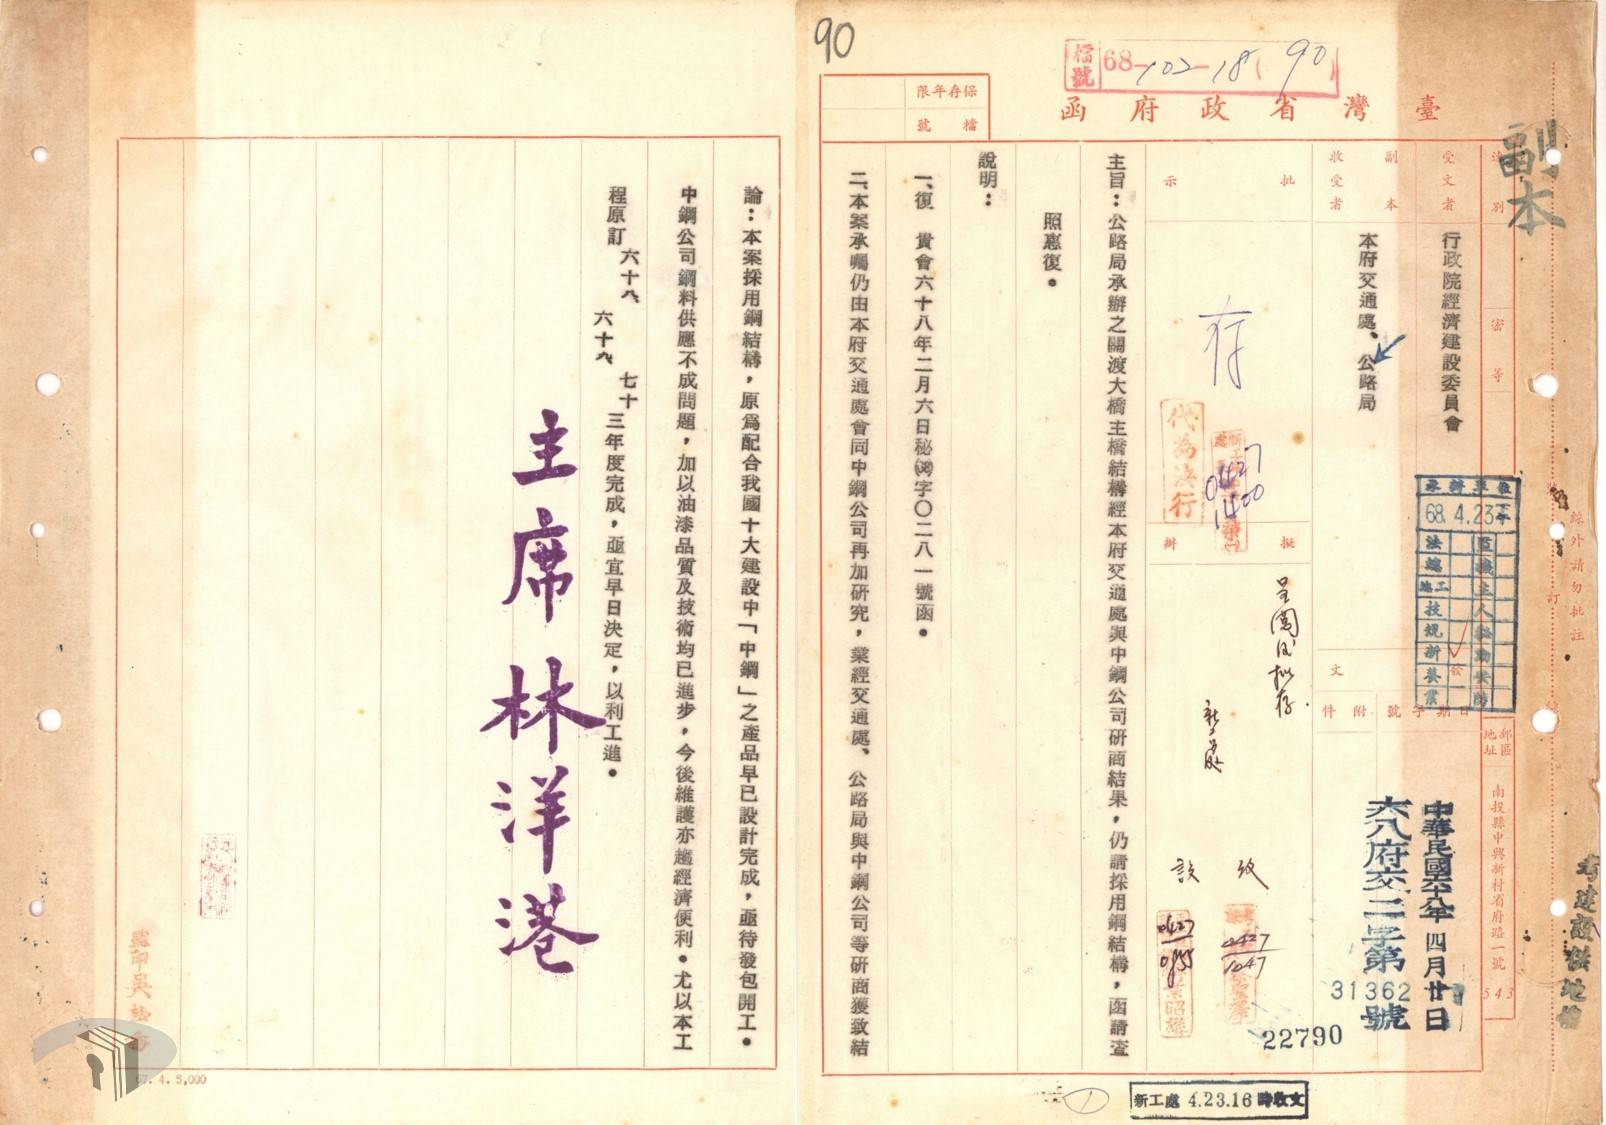 90
檔號 68-102-18(90)
臺灣省政府函
保存年限
檔號
副本
速別
密等
受文者
行政院經濟建設委員會
副本收受者
本府交通處、公路局
批示
存
代為決行
0427
1400
擬辦
呈閱後擬存
0427
1047
0427
0955
文
日期
字號
附件
中華民國六十八年四月廿日
六八府交二字第31362號
22790
郵區
地址
南投縣中興新村省府路一號
543
68.4.23
線外請勿批註
訂
主旨：公路局承辦之關渡大橋主橋結構經本府交通處與中鋼公司研商結果，仍請採用鋼結構，函請查
照惠復。
說明：
一、復　貴會六十八年二月六日秘字〇二八一號函。
二、本案承囑仍由本府交通處會同中鋼公司再加研究，業經交通處、公路局與中鋼公司等研商獲致結
論：本案採用鋼結構，原為配合我國十大建設中「中鋼」之產品早已設計完成，亟待發包開工。
中鋼公司鋼料供應不成問題，加以油漆品質及技術均已進步，今後維護亦趨經濟便利。尤以本工
程原訂六十八、六十九、七十三年度完成，亟宜早日決定，以利工進。
主席林洋港
監印吳
67.4.5,000
新工處 4.23.16時收文